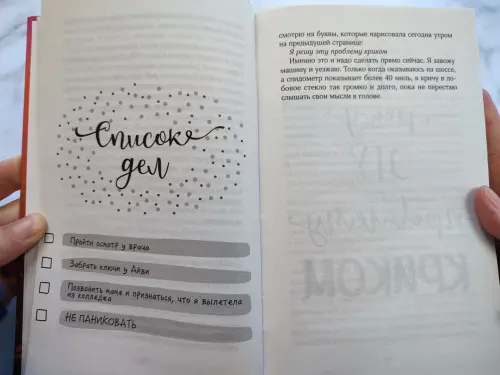 Список
дел
Пройти осмотр у врача
Забрать ключи у Айви
Позвонить маме и признаться, что я вылетела
из колледжа
НЕ ПАНИКОВАТЬ
смотрю на буквы, которые нарисовала сегодня утром
на предыдущей странице:
Я решу эту проблему криком
Именно это и надо сделать прямо сейчас. Я завожу
машину и уезжаю. Только когда оказываюсь на шоссе,
а спидометр показывает более 40 миль, я кричу в ло-
бовое стекло так громко и долго, пока не перестаю
слышать свои мысли в голове.
решу
эту
проблему
КРИКОМ